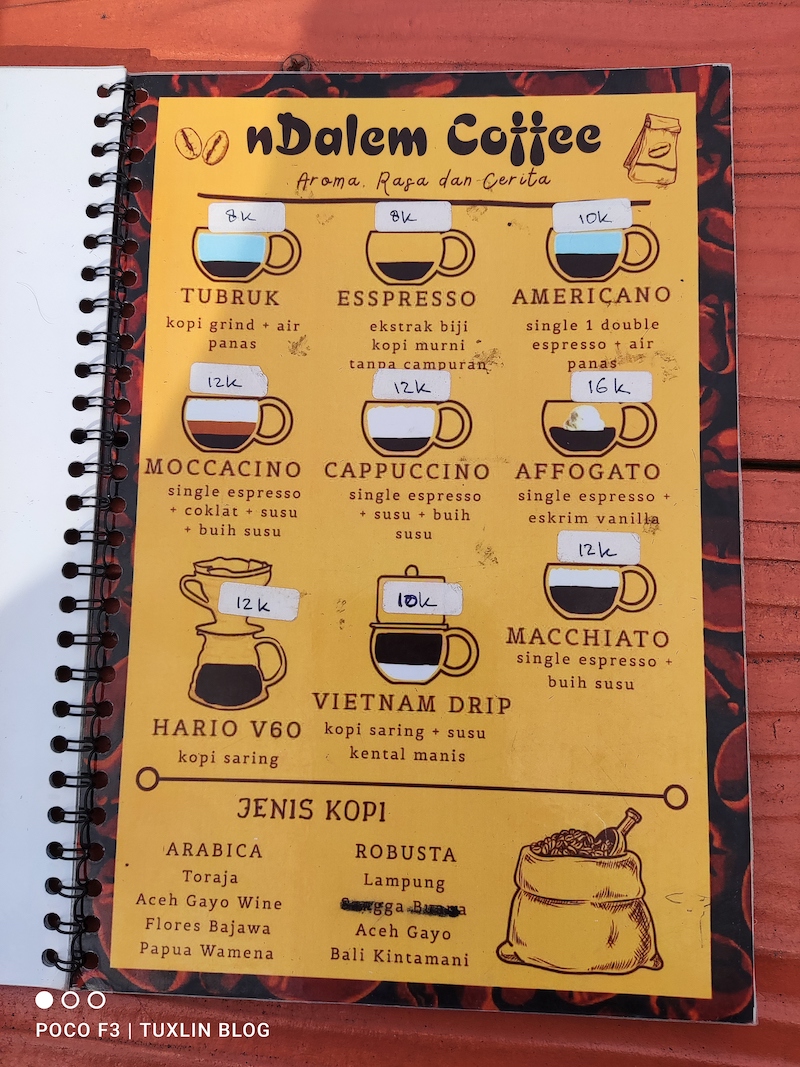 nDalem Coffee
Aroma, Rasa dan Cerita
8K
TUBRUK
kopi grind + air
panas
8K
ESSPRESSO
ekstrak biji
kopi murni
tanpa campuran
10K
AMERICANO
single 1 double
espresso + air
panas
12K
MOCCACINO
single espresso
+ coklat + susu
+ buih susu
12K
CAPPUCCINO
single espresso
+ susu + buih
susu
16K
AFFOGATO
single espresso +
eskrim vanilla
12K
HARIO V60
kopi saring
10K
VIETNAM DRIP
kopi saring + susu
kental manis
12K
MACCHIATO
single espresso +
buih susu
JENIS KOPI
ARABICA
Toraja
Aceh Gayo Wine
Flores Bajawa
Papua Wamena
ROBUSTA
Lampung
Aceh Gayo
Bali Kintamani
POCO F3 | TUXLIN BLOG